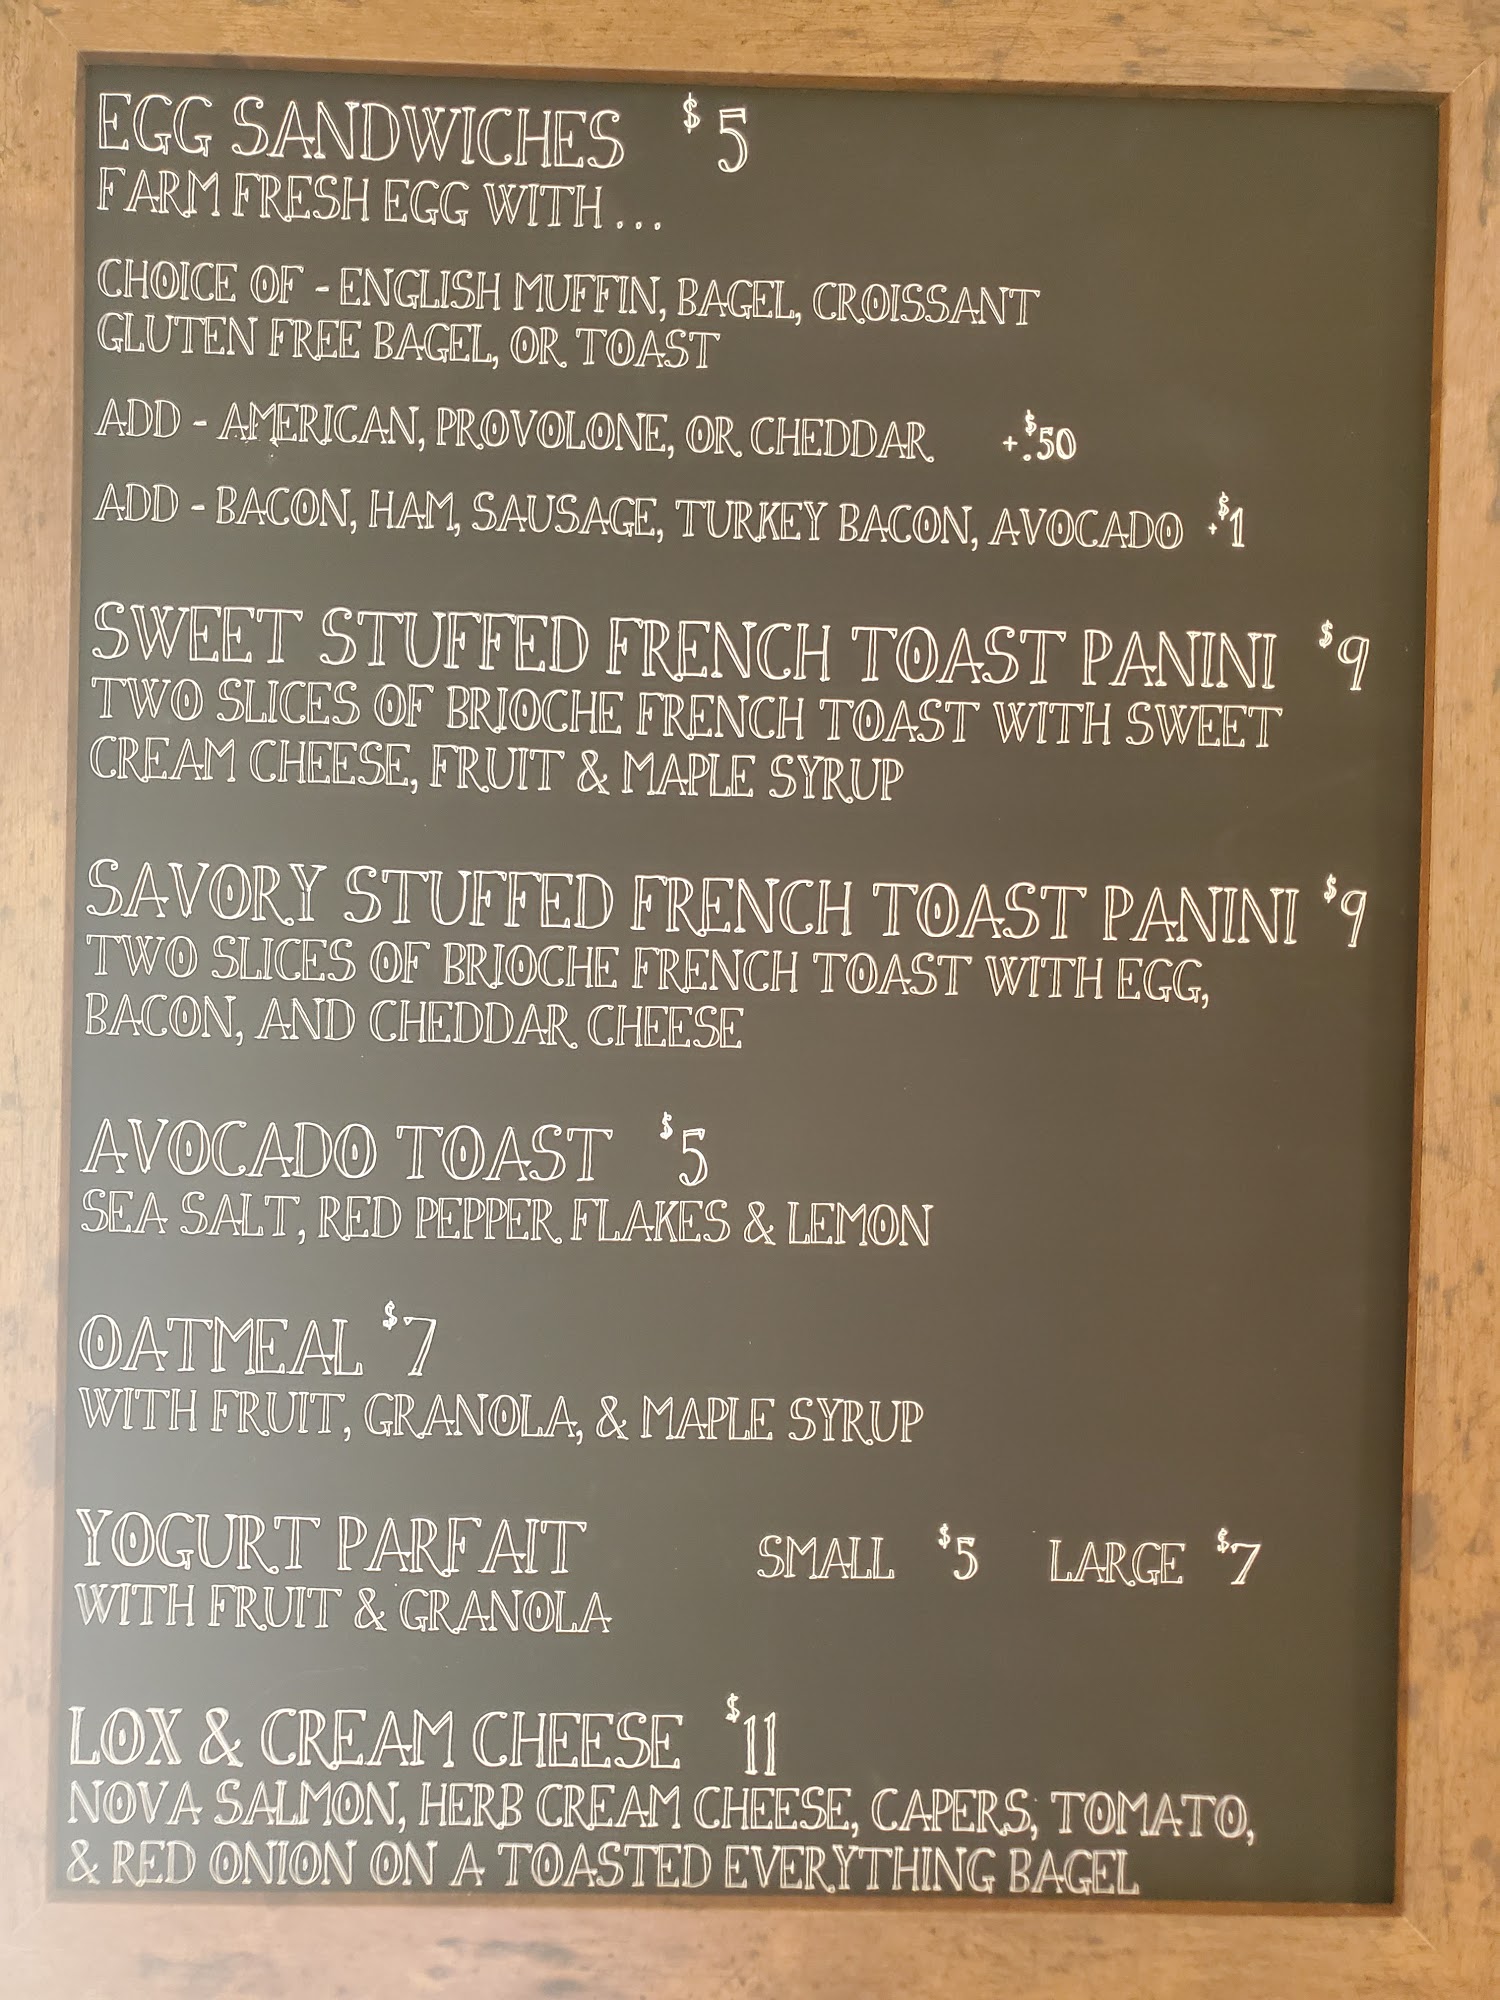 EGG SANDWICHES $5
FARM FRESH EGG WITH...
CHOICE OF - ENGLISH MUFFIN, BAGEL, CROISSANT
GLUTEN FREE BAGEL, OR TOAST
ADD - AMERICAN, PROVOLONE, OR CHEDDAR +$.50
ADD - BACON, HAM, SAUSAGE, TURKEY BACON, AVOCADO +$1
SWEET STUFFED FRENCH TOAST PANINI $9
TWO SLICES OF BRIOCHE FRENCH TOAST WITH SWEET
CREAM CHEESE, FRUIT & MAPLE SYRUP
SAVORY STUFFED FRENCH TOAST PANINI $9
TWO SLICES OF BRIOCHE FRENCH TOAST WITH EGG,
BACON, AND CHEDDAR CHEESE
AVOCADO TOAST $5
SEA SALT, RED PEPPER FLAKES & LEMON
OATMEAL $7
WITH FRUIT, GRANOLA, & MAPLE SYRUP
YOGURT PARFAIT SMALL $5 LARGE $7
WITH FRUIT & GRANOLA
LOX & CREAM CHEESE $11
NOVA SALMON, HERB CREAM CHEESE, CAPERS, TOMATO,
& RED ONION ON A TOASTED EVERYTHING BAGEL